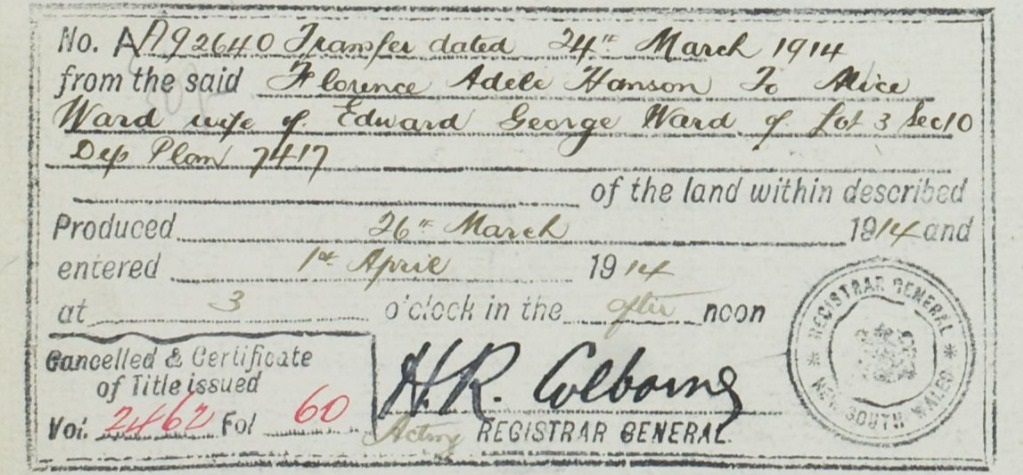 No. A 192640 Transfer dated 24th March 1914
from the said Florence Adele Hanson To Alice
Ward wife of Edward George Ward of Lot 3 Sec 10
Dep Plan 7417
of the land within described
Produced 26th March 1914 and
entered 1st April 1914
at 3 o'clock in the after noon
Cancelled & Certificate
of Title issued
Vol. 2462 Fol 60
H.R. Colborne
Acting REGISTRAR GENERAL.
* REGISTRAR GENERAL *
NEW SOUTH WALES